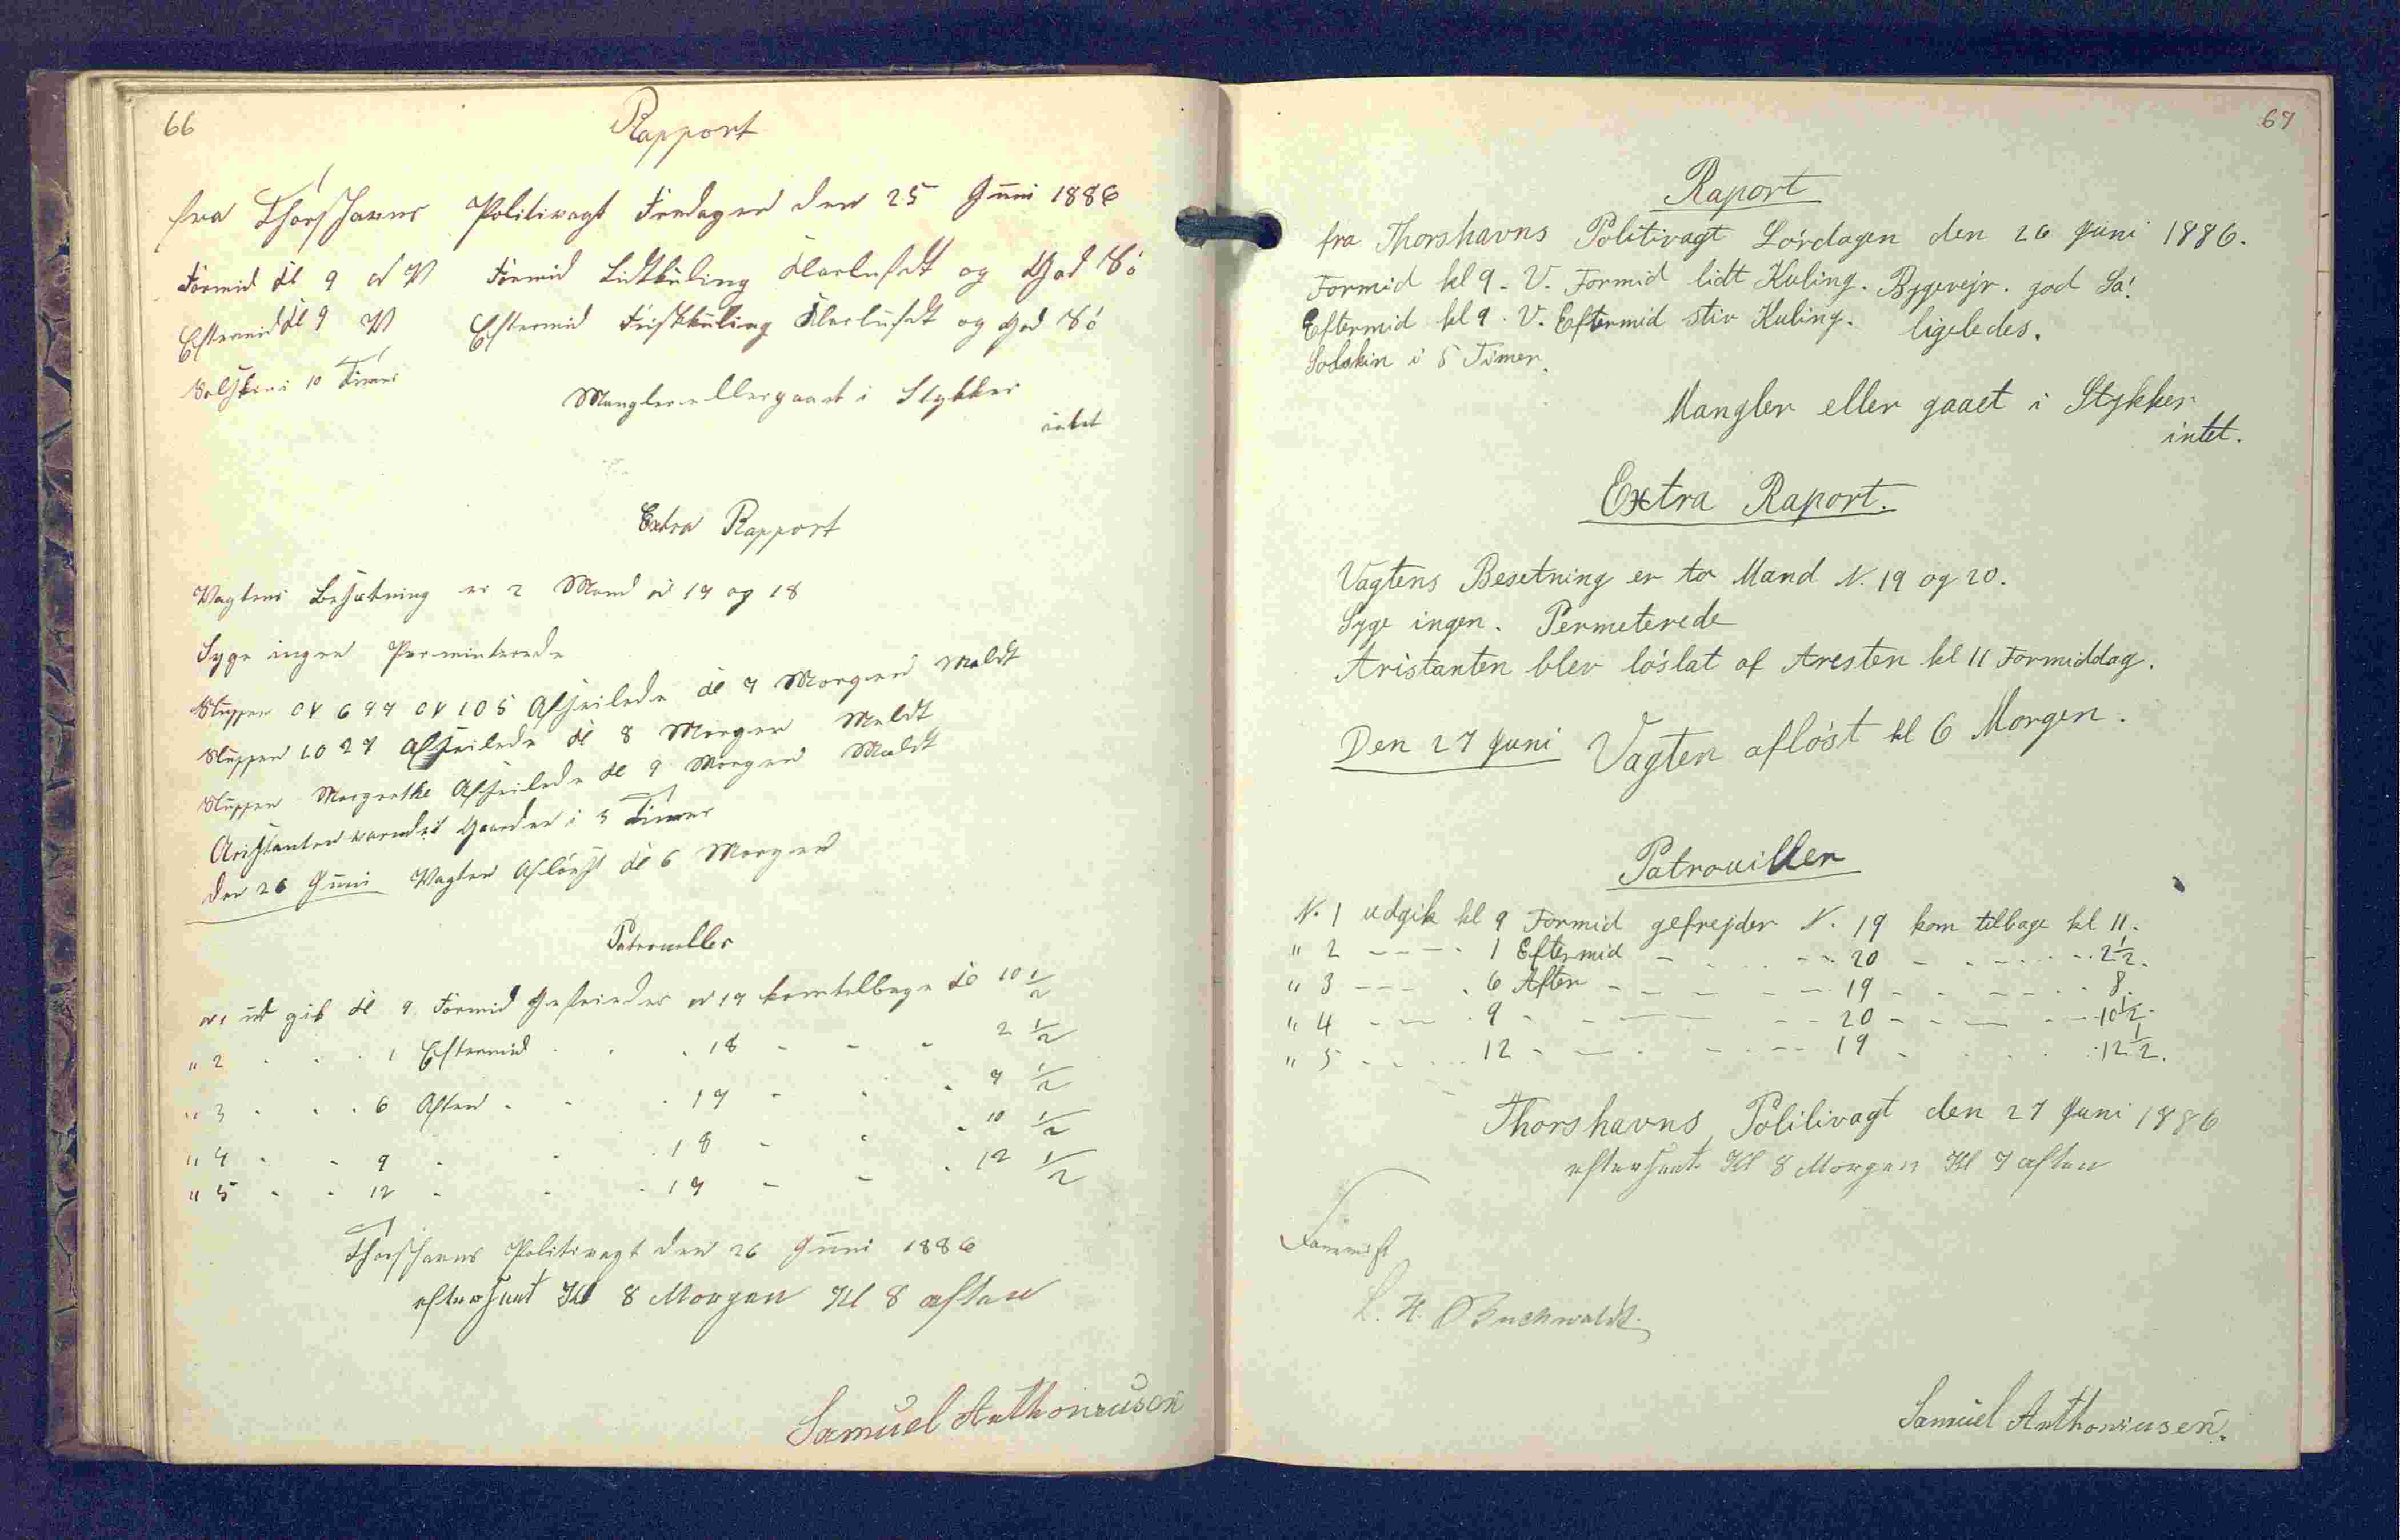 66
Rapport
fra Thorshavns Politivagt Fredagen den 25 Juni 1886
Formid Kl 9 V Formid Lidtkuling Klarluft og God Sö
Eftermid Kl 9 V Eftermid Friskkuling Klarluft og God Sö
Solskin i 10 Timer
Mangler eller gaaet i Stykker
intet
Extra Rapport
Vagtens Besætning er 2 Mand N 17 og 18
Syge ingen Perminterede
Sluppen 697 105 Afseilede Kl 7 Morgen Meldt
Sluppen 1027 Afseilede Kl 8 Morgen Meldt
Sluppen Margrethe Afseilede Kl 9 Morgen Meldt
Aristanten Gaarden i 3 Timer
Den 26 Juni Vagten Aflöst Kl 6 Morgen
Patrouller
N 1 ud gik Kl 9 Formid Gefreider N 17 kom tilbage Kl 10 1/2
" 2 - - - 1 Eftermid - - - 18 - - - 2 1/2
" 3 - - - 6 Aften - - - 17 - - - 7 1/2
" 4 - - 9 - - - 18 - - - 10 1/2
" 5 - - 12 - - - 17 - - - 12 1/2
Thorshavns Politivagt den 26 Juni 1886
efterseet Kl 8 Morgen Kl 8 aften
Samuel Anthoniusen
67
Raport
fra Thorshavns Politivagt Lördagen den 26 Juni 1886.
Formid kl 9. V. Formid lidt Kuling. Bygevejr. god Sö!
Eftermid kl 9. V. Eftermid stiv Kuling. ligeledes.
Solskin i 5 Timer.
Mangler eller gaaet i Stykker
intet.
Extra Raport.
Vagtens Besetning er to Mand N. 19 og 20.
Syge ingen. Permeterede
Aristanten blev löslat af Aresten kl 11 Formiddag.
Den 27 Juni Vagten aflöst kl 6 Morgen.
Patrouiller
N. 1 udgik kl 9 Formid gefrejder N. 19 kom tilbage kl 11.
" 2 - - - 1 Eftermid - - - 20 - - - 2 1/2.
" 3 - - - 6 Aften - - - 19 - - - 8.
" 4 - - - 9 - - - 20 - - - 10 1/2.
" 5 - - - 12 - - - 19 - - - 12 1/2.
Thorshavns Politivagt den 27 Juni 1886
efterseet Kl 8 Morgen Kl 7 aften
H. Buchwaldt.
Samuel Anthoniusen.